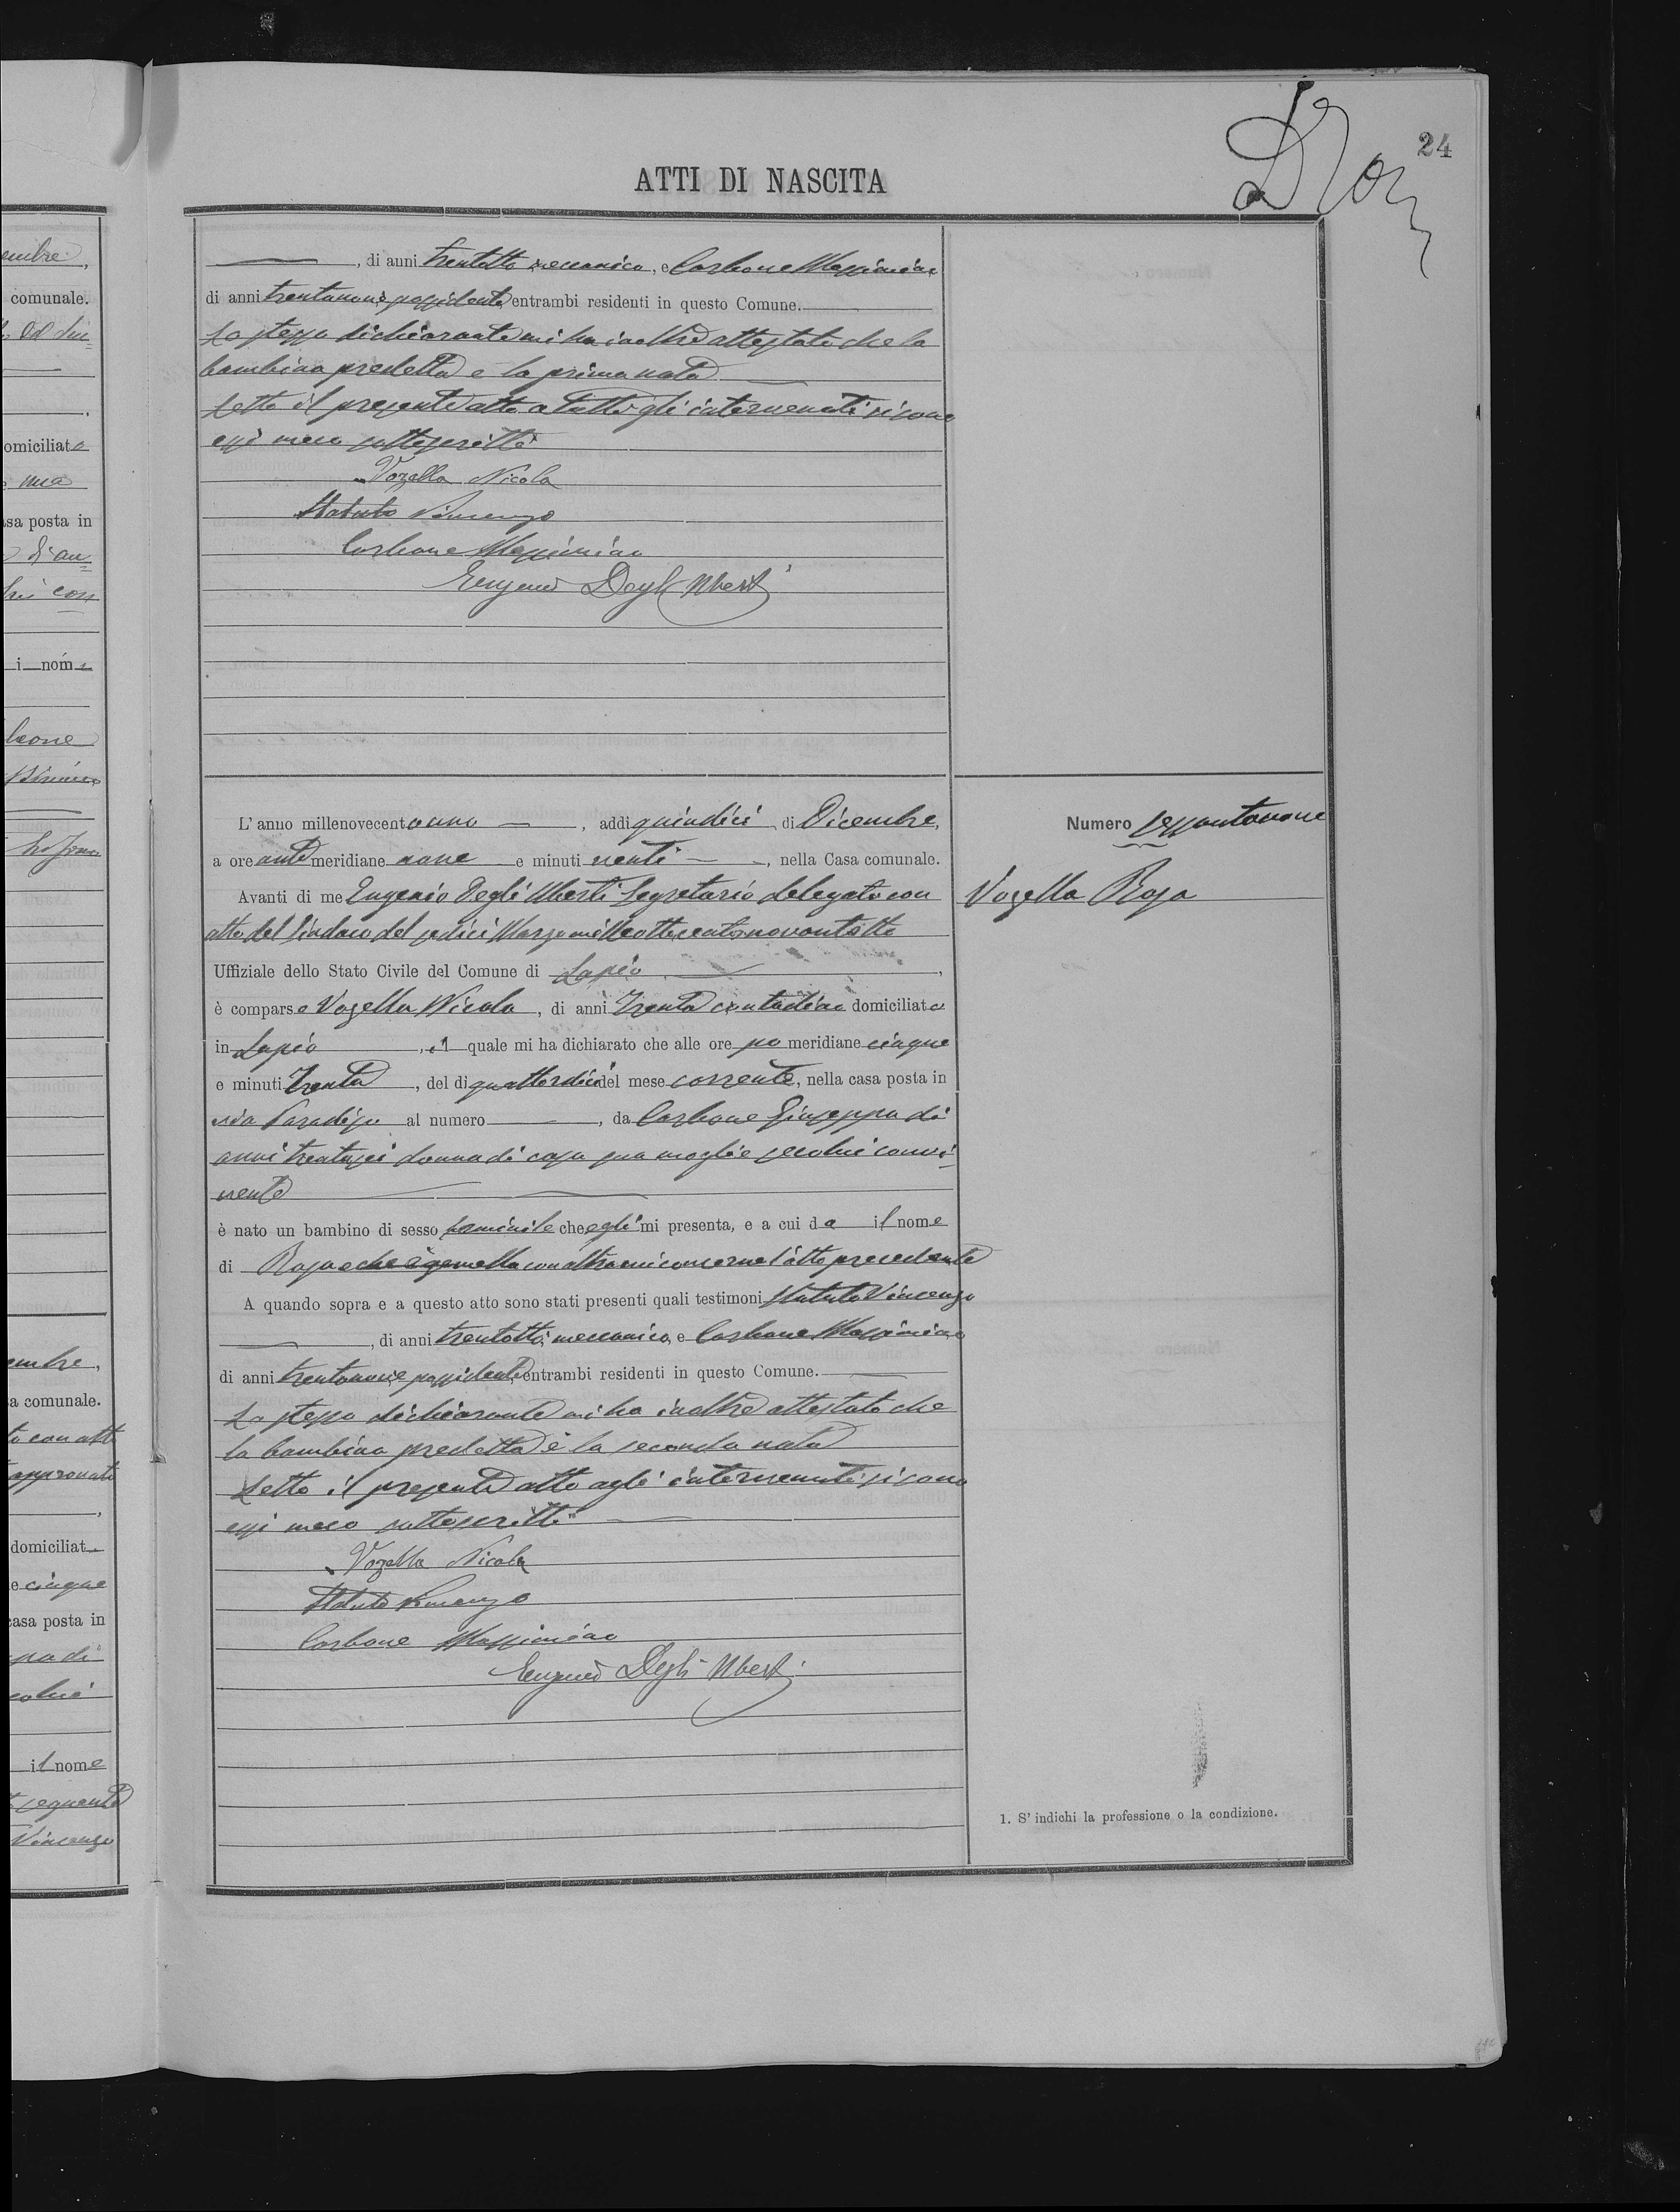 24
ATTI DI NASCITA
, di anni trentotto meccanico, e Carbone Massimino
di anni trentanove, possidente, entrambi residenti in questo Comune.
Lo stesso dichiarante mi ha inoltre attestato che la
bambina predetta e la prima nata
Letto il presente atto a tutti gli intervenuti si sono
essi meco sottoscritti
Vozella Nicola
Statuto Vincenzo
Carbone Massimino
Eugenio Degli Uberti
L'anno millenovecento uno, addi quindici di Dicembre,
a ore anti meridiane nove e minuti venti, nella Casa comunale.
Avanti di me Eugenio Degli Uberti Segretario delegato con
atto del Sindaco del sedici Marzo milleottocentonovantotto
Uffiziale dello Stato Civile del Comune di Lapio,
è comparso Vozella Nicola, di anni trenta contadino domiciliato
in Lapio, il quale mi ha dichiarato che alle ore po meridiane cinque
e minuti trenta, del di quattordici del mese corrente, nella casa posta in
via Paradiso al numero, da Carbone Giuseppa di
anni trentasei donna di casa sua moglie secolui convi-
vente
è nato un bambino di sesso feminile che egli mi presenta, e a cui da il nome
di Rosa e che è gemella con altra cui concerne l'atto precedente
A quando sopra e a questo atto sono stati presenti quali testimoni Statuto Vincenzo
, di anni trentotto, meccanico, e Carbone Massimino
di anni trentanove, possidente, entrambi residenti in questo Comune.
Lo stesso dichiarante mi ha inoltre attestato che
la bambina predetta è la seconda nata
Letto il presente atto agli intervenuti si sono
essi meco sottoscritti
Vozella Nicola
Statuto Vincenzo
Carbone Massimino
Eugenio Degli Uberti
Numero sessantanove
Vozella Rosa
1. S'indichi la professione o la condizione.